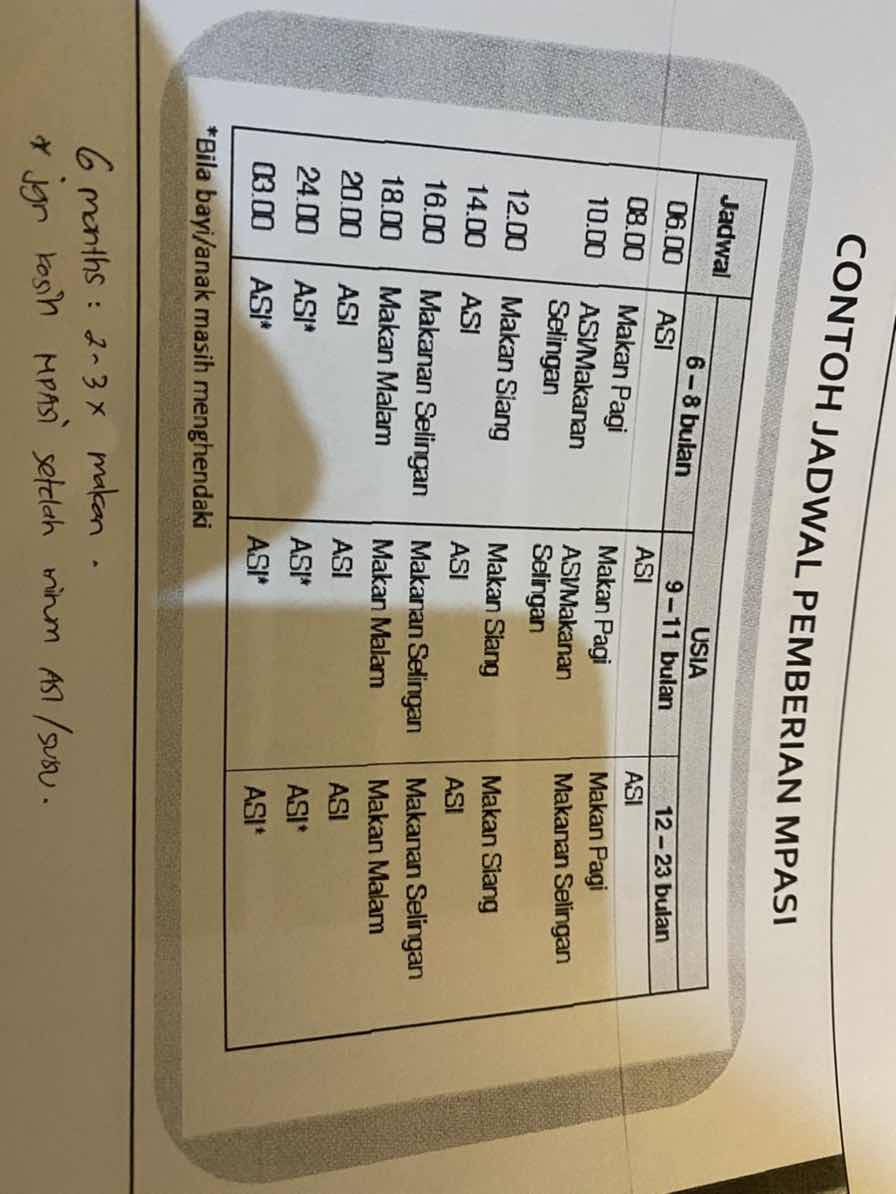 CONTOH JADWAL PEMBERIAN MPASI
Jadwal USIA
6 – 8 bulan 9 – 11 bulan 12 – 23 bulan
06.00 ASI ASI ASI
08.00 Makan Pagi Makan Pagi Makan Pagi
10.00 ASI/Makanan Selingan ASI/Makanan Selingan Makanan Selingan
12.00 Makan Siang Makan Siang Makan Siang
14.00 ASI ASI ASI
16.00 Makanan Selingan Makanan Selingan Makanan Selingan
18.00 Makan Malam Makan Malam Makan Malam
20.00 ASI ASI ASI
24.00 ASI* ASI* ASI*
03.00 ASI* ASI* ASI*
*Bila bayi/anak masih menghendaki
6 months : 2~3 x makan .
* jgn kasih MPASI setelah minum ASI / susu .